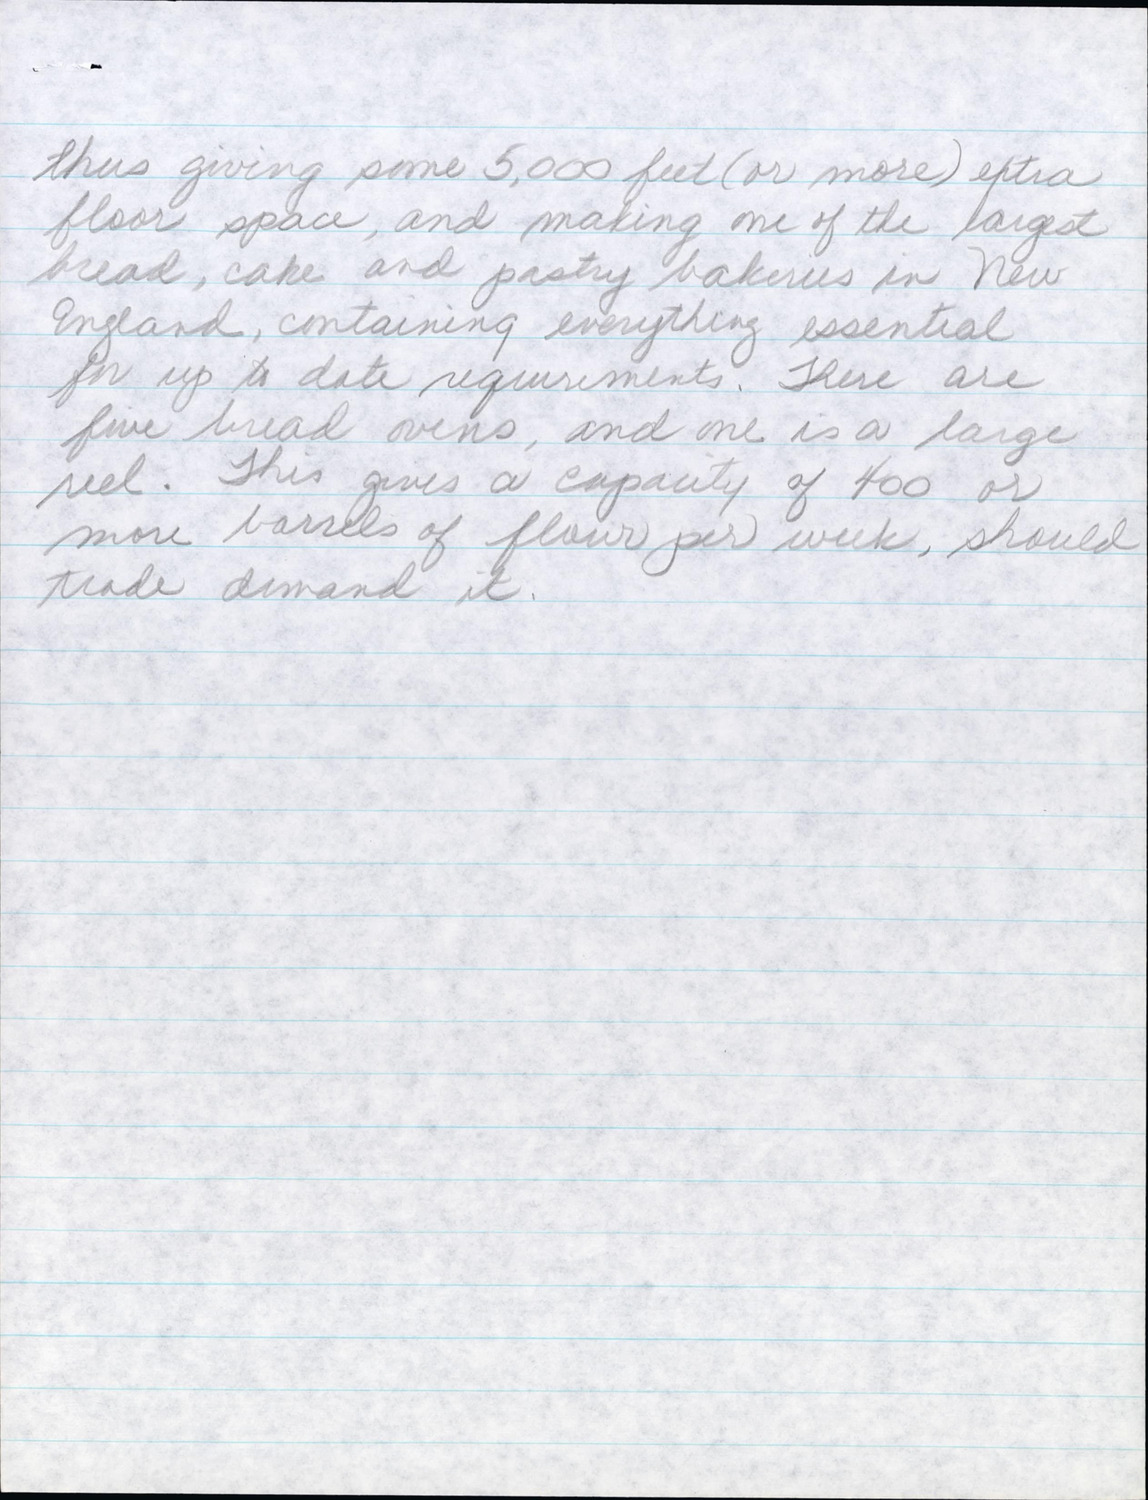 thus giving some 5,000 feet (or more) extra
floor space, and making one of the largest
bread, cake and pastry bakeries in New
England, containing everything essential
for up to date requirements. There are
five bread ovens, and one is a large
reel. This gives a capacity of 400 or
more barrels of flour per week, should
trade demand it.